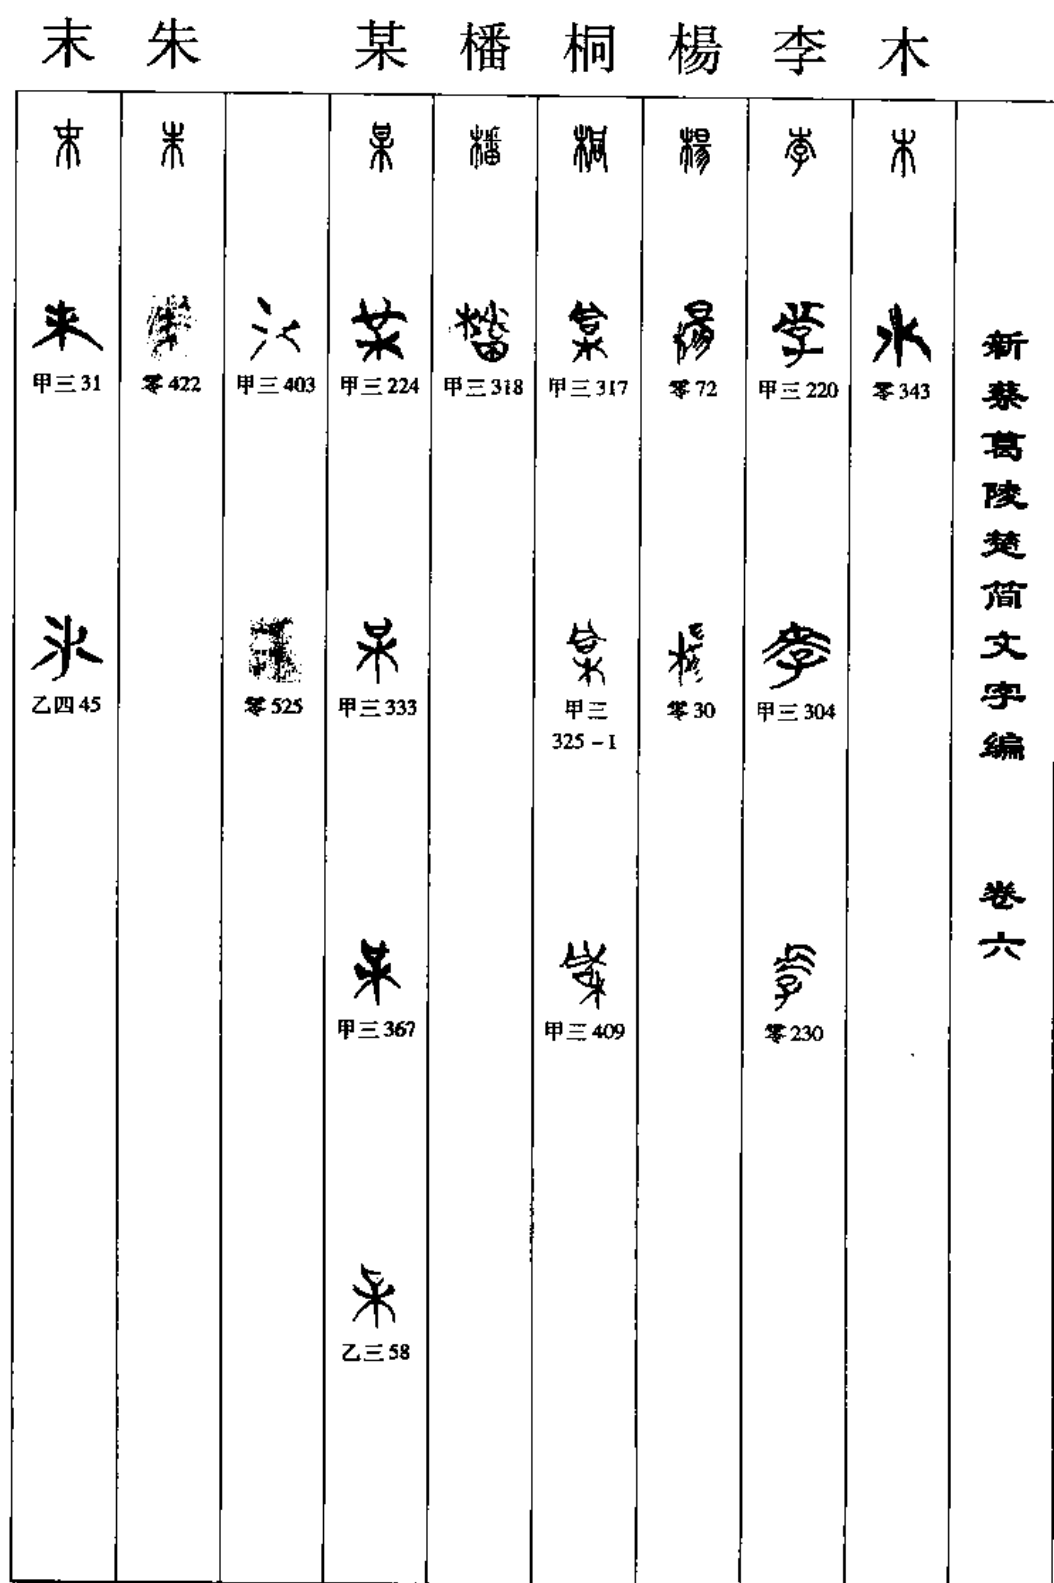 新蔡葛陵楚简文字编 卷六
木
零343
李
甲三220
甲三304
零230
楊
零72
零30
桐
甲三317
甲三
325-1
甲三409
橎
甲三318
某
甲三224
甲三333
甲三367
乙三58
甲三403
零525
朱
零422
末
甲三31
乙四45